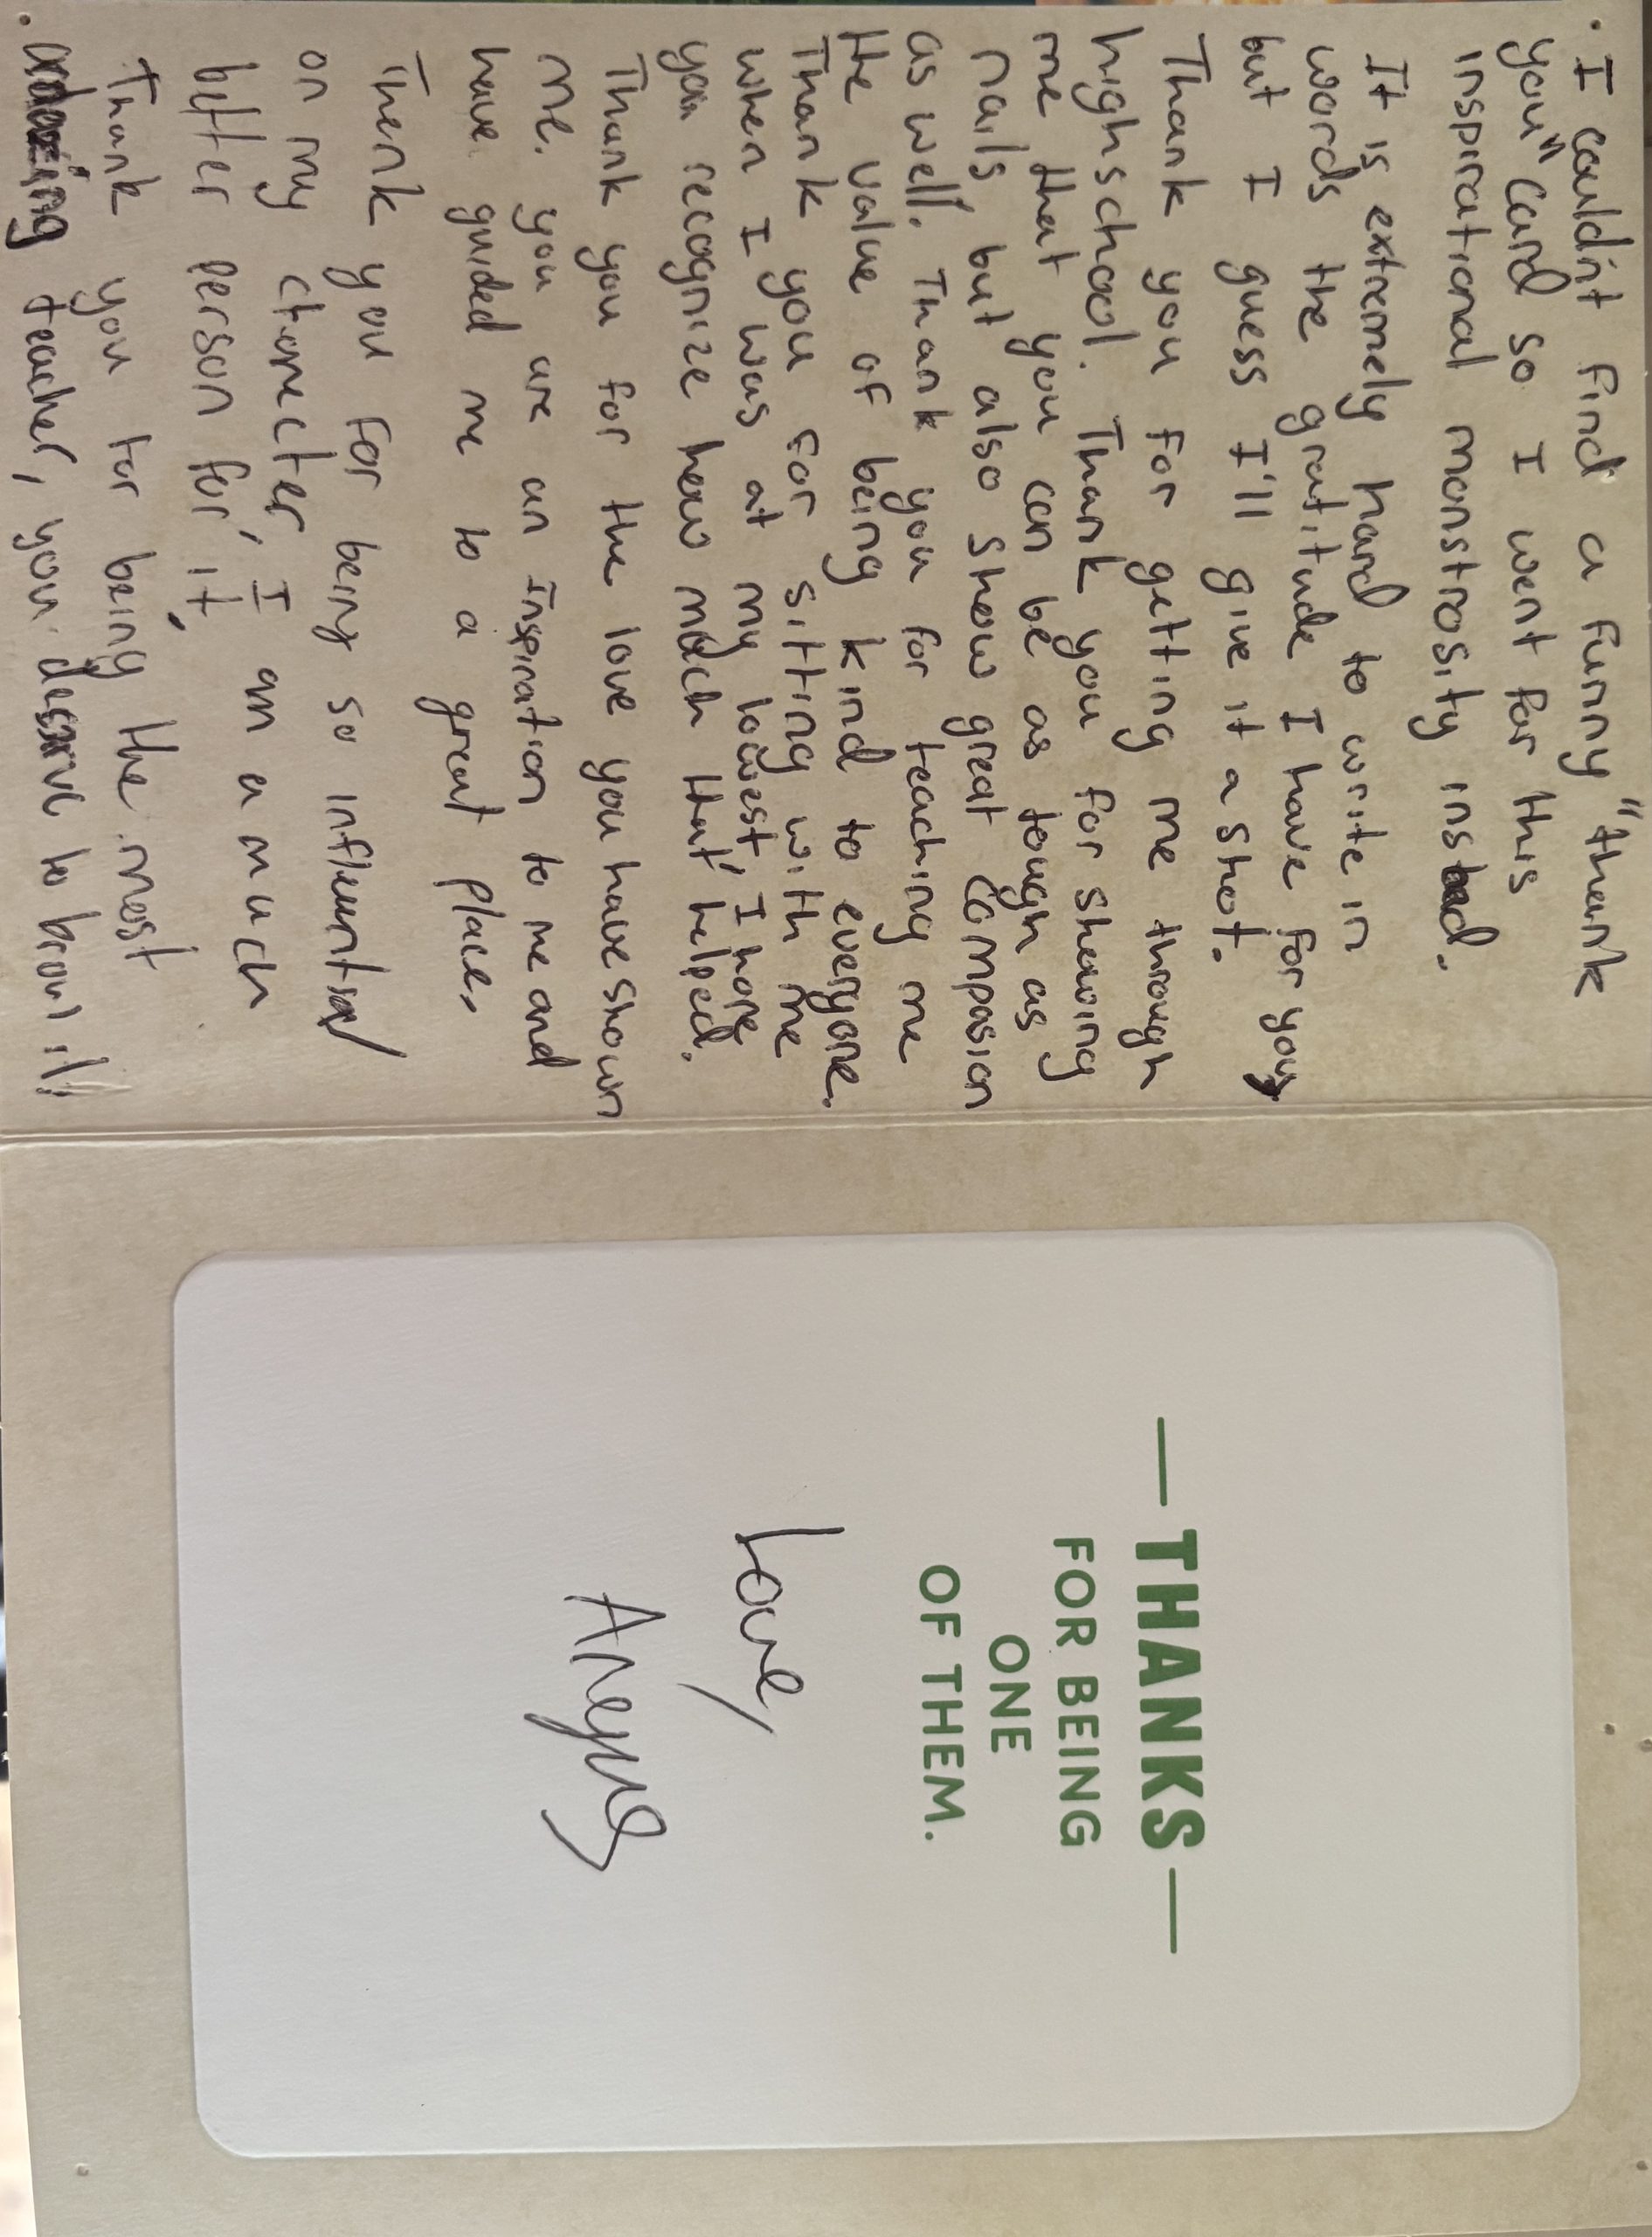 . I could'nt find a funny "thank
you" card so I went for this
inspirational monstrosity instead.
It is extremely hard to write in
words the gratitude I have for you,
but I guess I'll give it a shot.
Thank you for getting me through
highschool. Thank you for showing
me that you can be as tough as
nails but also show great compasion
as well. Thank you for teaching me
the value of being kind to everyone.
Thank you for sitting with me
when I was at my lowest, I hope
you recognize how much that helped.
Thank you for the love you have shown
me. you are an inspiration to me and
have guided me to a great place.
Thank you for being so influential
on my charecter, I am a much
better person for it.
Thank you for being the most
. teacher, you deserve to know it!
— THANKS —
FOR BEING
ONE
OF THEM.
Love,